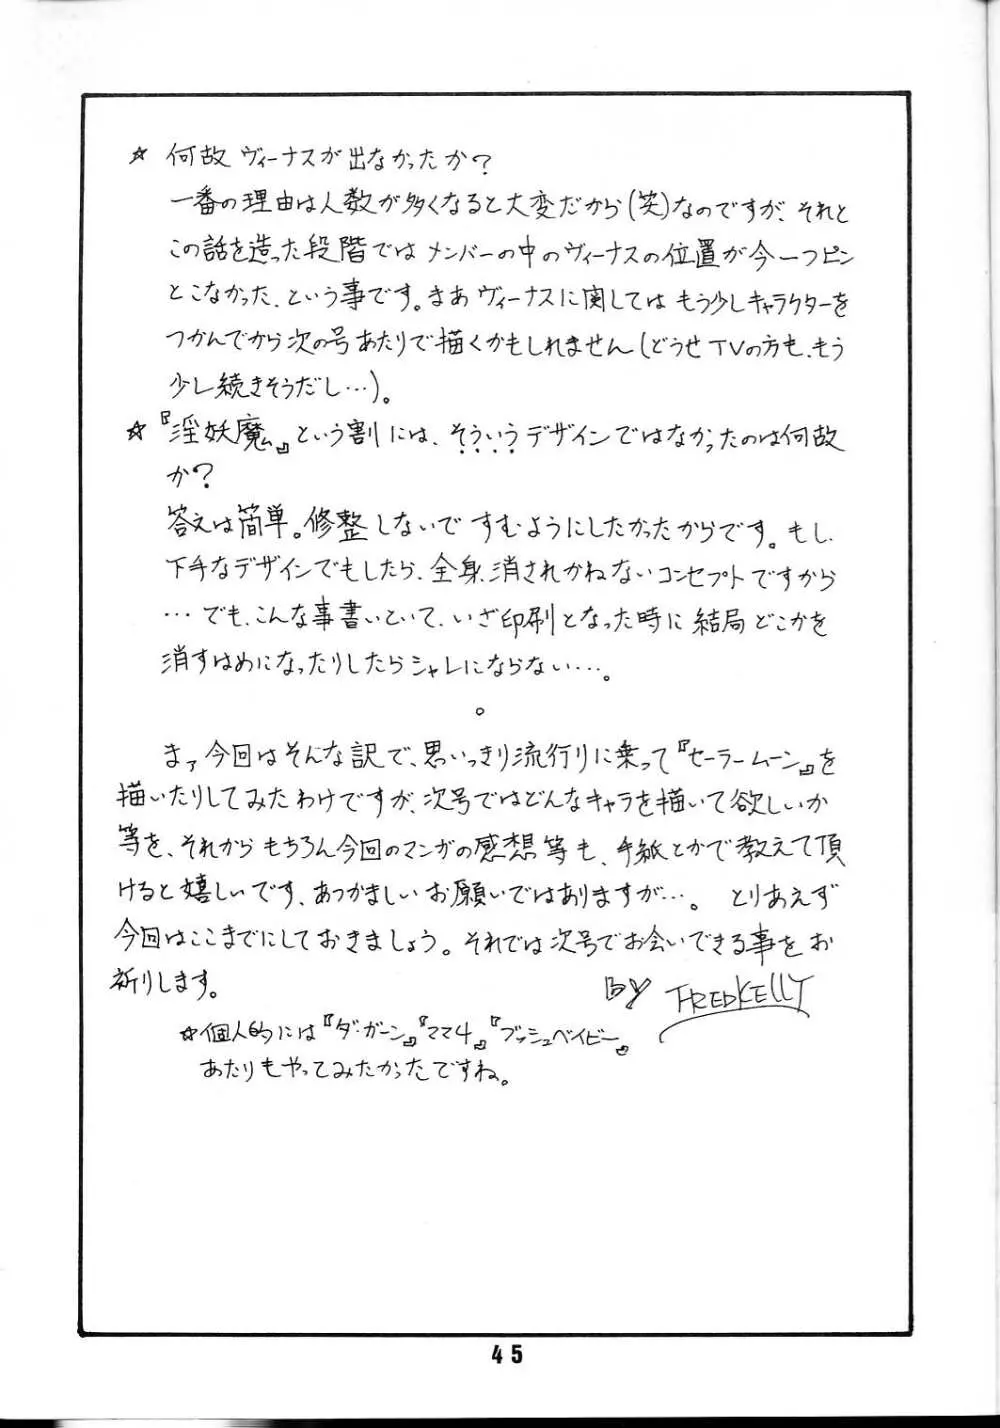 ☆ 何故ヴィーナスが出なかったか？
一番の理由は人数が多くなると大変だから(笑)なのですが、それと
この話を造った段階ではメンバーの中のヴィーナスの位置が今一つピン
とこなかった、という事です。まあヴィーナスに関してはもう少しキャラクターを
つかんでから次の号あたりで描くかもしれません(どうせTVの方も、もう
少し続きそうだし…)。
☆『淫妖魔ム』という割には、そういうデザインではなかったのは何故
か？
答えは簡単。修整しないですむようにしたかったからです。もし、
下手なデザインでもしたら、全身消されかねないコンセプトですから
…でも、こんな事書いといて、いざ印刷となった時に結局どこかを
消すはめになったりしたらシャレにならない…。
。
まァ今回はそんな訳で、思いっきり流行りに乗って『セーラームーン』を
描いたりしてみたわけですが、次号ではどんなキャラを描いて欲しいか
等を、それからもちろん今回のマンガの感想等も、手紙とかで教えて頂
けると嬉しいです、あつかましいお願いではありますが…。とりあえず
今回はここまでにしておきましょう。それでは次号でお会いできる事をお
祈りします。
BY FREDKELLY
☆個人的には『ダ・ガーン』『ママ4』『ブッシュベイビー』
あたりもやってみたかったですね。
45